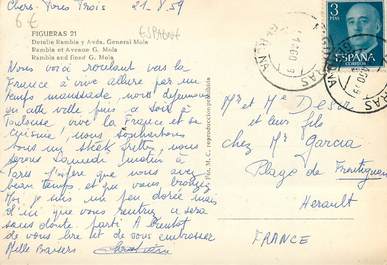 Chers Yous Trois 21.8.59
6€ ESPAGNE
FIGUERAS 21
Detalle Rambla y Avda. General Mola
Rambla et Avenue G. Mola
Rambla and G. Mola
Nous voici roulant vers la
France à vive allure par un
temps maussade, nous
cette ville puis ce soir à
Toulouse vive la France et sa
cuisine! nous
tous un steck frites, nous
serons Samedi matin à
Paris. J'espère que vous avez
beau temps, et que vous bronzez
Moi, je suis un peu dorée mais
d'ici que vous rentriez ce sera
sans doute parti. A bientôt
de vous lire et de vous embrasser
Mille Baisers
reproducción prohibida
3 PTAS
ESPAÑA
CORREOS
Mr et Me
et leur fils
chez Mr Garcia
Plage de Frontignan
Herault
FRANCE